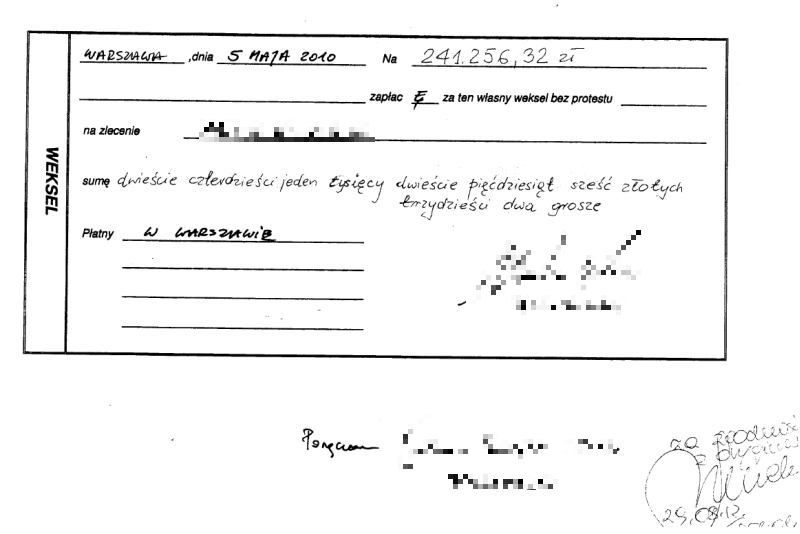 WARSZAWA ,dnia 5 MAJA 2010 Na 241.256,32 zł
zapłac ę za ten własny weksel bez protestu
na zlecenie
sumę dwieście czterdzieści jeden tysięcy dwieście pięćdziesiąt sześć złotych
trzydzieści dwa grosze
Płatny W WARSZAWIE
WEKSEL
Poręczam
za zgodność